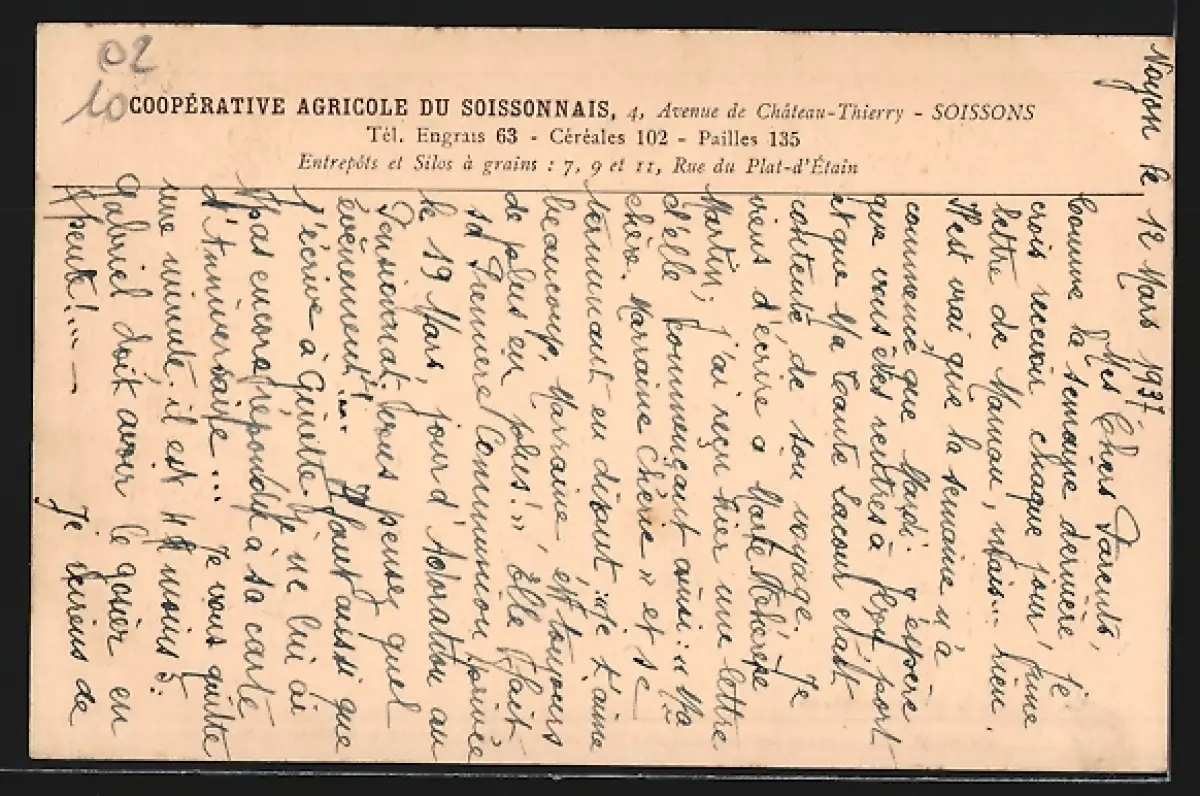 02
10
COOPÉRATIVE AGRICOLE DU SOISSONNAIS, 4, Avenue de Château-Thierry - SOISSONS
Tél. Engrais 63 - Céréales 102 - Pailles 135
Entrepôts et Silos à grains : 7, 9 et 11, Rue du Plat-d'Étain
Noyon le 12 Mars 1937
Mes Chers Parents,
Comme la semaine dernière je
crois recevoir chaque jour, une
lettre de Maman, mais... rien.
Il est vrai que la semaine n'a
commencé que Mardi. J'espère
que vous êtes rentrés à port
et que Ma Tante Lacour était
contente, de son voyage. Je
viens d'écrire à Marie
Martin; j'ai reçu hier une lettre
d'elle commençant ainsi: "Ma
chère Marraine Chérie" et se
terminant en disant "Je t'aime
beaucoup, Marraine, et toujours
de plus en plus!" Elle fait
sa Première Communion privée
le 19 Mars, jour d'Adoration au
Pensionnat. Vous pensez quel
évènement!... Il faut aussi que
j'écrive à Ginette. Je ne lui ai
pas encore répondu à sa carte
d'Anniversaire... Je vous quitte
une minute, il est 4h moins 5.
Gabriel doit avoir le goûter en
Je reviens de